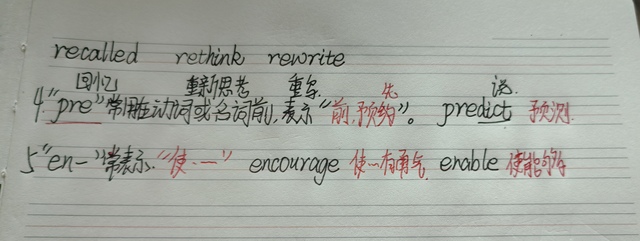 recalled rethink rewrite
回忆 重新思考 重写 先 说
4."pre"常用在动词或名词前,表示"前,预约"。 predict 预测
5"en-"常表示"使…" encourage 使…有勇气 enable 使能够